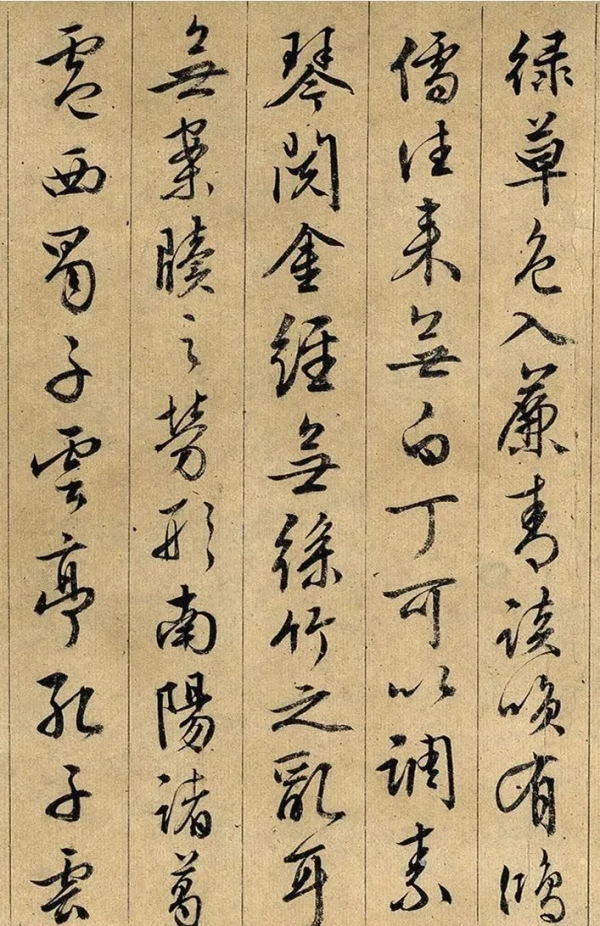 綠草色入簾青談咲有鴻
儒往來無白丁可以調素
琴閱金經無絲竹之亂耳
無案牘之勞形南陽諸葛
廬西蜀子雲亭孔子雲